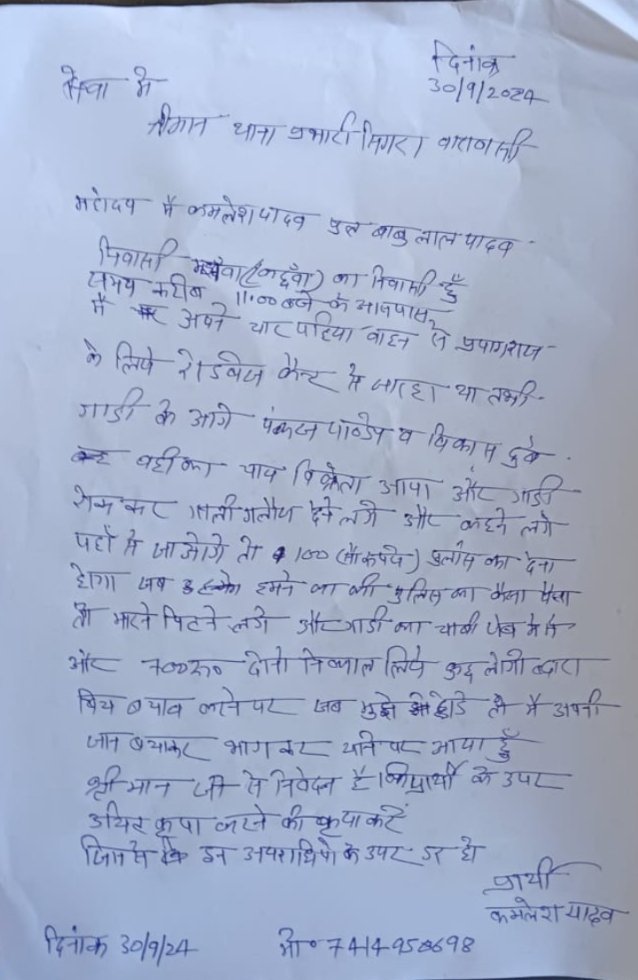 दिनांक
30/9/2024
सेवा मे
श्रीमान थाना प्रभारी सिगरा वाराणसी
महोदय मै कमलेश यादव पुत्र बाबु लाल यादव
निवासी (लहूँवा) का निवासी हूँ
समय करीब 11:00 बजे के आसपास
मै अपने चार पहिया वाहन से प्रयागराज
के लिये रोडवेज कैन्ट मे जा रहा था तभी
गाडी के आगे पंकज पाण्डेय व विकास दुबे
वही का चाय विक्रेता आया और गाडी
रोक कर गाली गलौच देने लगे और कहने लगे
यहाँ से जाओगे तो 100 (सौ रूपये) पुलीस का देना
होगा जब हमने कहा की पुलिस का कैसा पैसा
तो मारने पिटने लगे और गाडी का चाबी जेब मे से
और 700रू0 दोनो निकाल लिये कुछ लोगो द्वारा
बिच बचाव करने पर जब मुझे छोडे तो मै अपनी
जान बचाकर भाग कर थाने पर आया हूँ
श्री मान जी से निवेदन है कि प्रार्थी के उपर
उचित कृपा करने की कृपा करें
जिससे कि इन अपराधियो के उपर डर हो
प्रार्थी
कमलेश यादव
दिनांक 30/9/24 मो० 7414958698